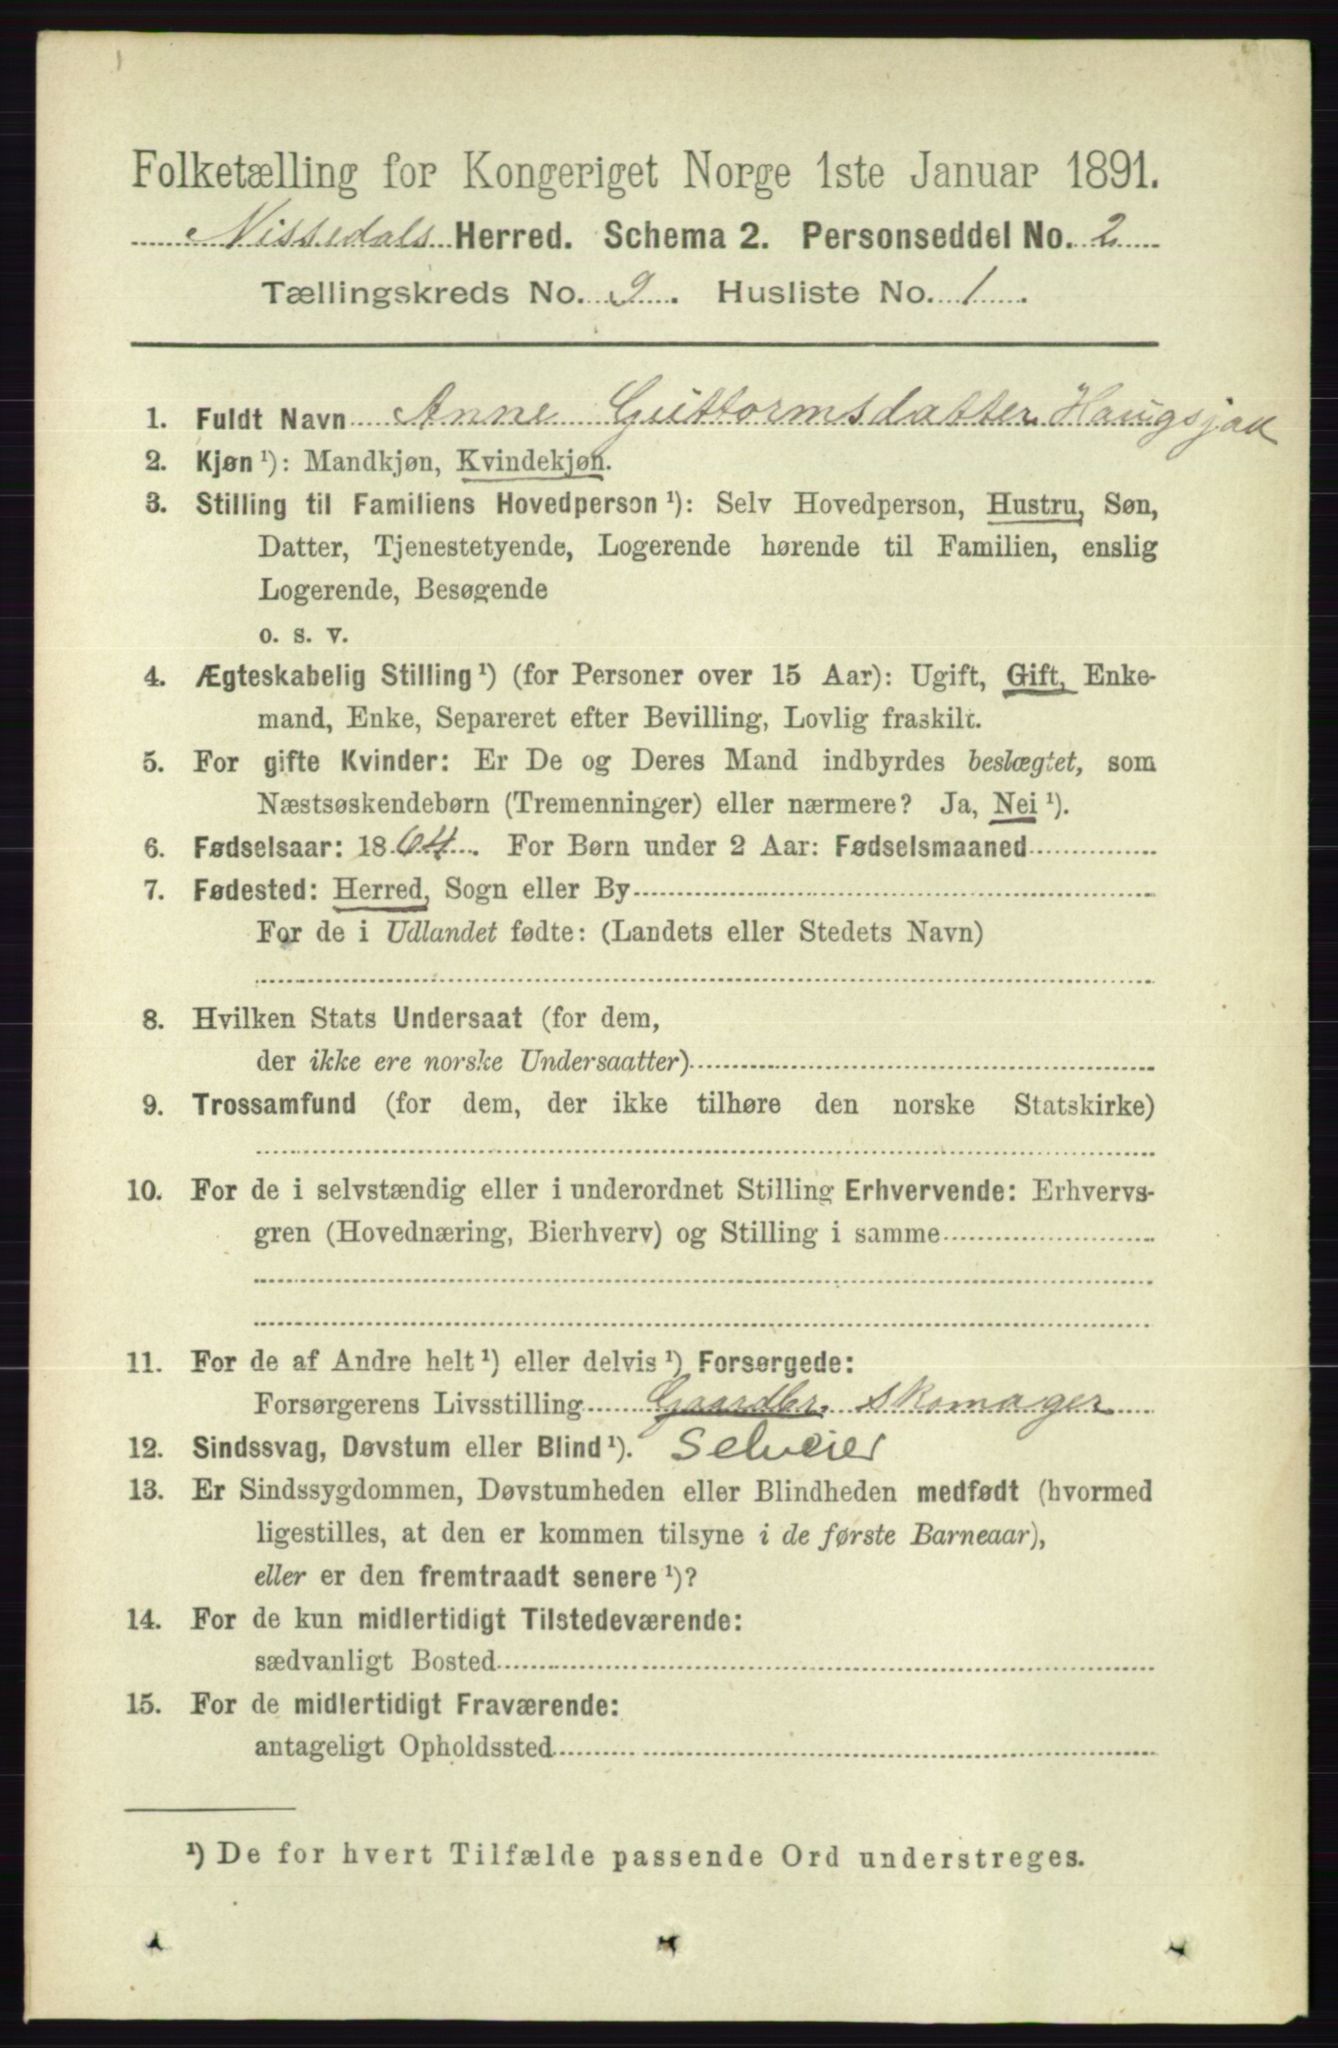 Folketælling for Kongeriget Norge 1ste Januar 1891.
Nissedals Herred. Schema 2. Personseddel No. 2
Tællingskreds No. 9. Husliste No. 1.
1. Fuldt Navn Anne Guttormsdatter Haugsjaa
2. Kjøn ¹): Mandkjøn, Kvindekjøn.
3. Stilling til Familiens Hovedperson ¹): Selv Hovedperson, Hustru, Søn,
Datter, Tjenestetyende, Logerende hørende til Familien, enslig
Logerende, Besøgende
o. s. v.
4. Ægteskabelig Stilling ¹) (for Personer over 15 Aar): Ugift, Gift, Enke-
mand, Enke, Separeret efter Bevilling, Lovlig fraskilt.
5. For gifte Kvinder: Er De og Deres Mand indbyrdes beslægtet, som
Næstsøskendebørn (Tremenninger) eller nærmere? Ja, Nei ¹).
6. Fødselsaar: 1864. For Børn under 2 Aar: Fødselsmaaned
7. Fødested: Herred, Sogn eller By
For de i Udlandet fødte: (Landets eller Stedets Navn)
8. Hvilken Stats Undersaat (for dem,
der ikke ere norske Undersaatter)
9. Trossamfund (for dem, der ikke tilhøre den norske Statskirke)
10. For de i selvstændig eller i underordnet Stilling Erhvervende: Erhvervs-
gren (Hovednæring, Bierhverv) og Stilling i samme
11. For de af Andre helt ¹) eller delvis ¹) Forsørgede:
Forsørgerens Livsstilling Gaardbr. Skomager
12. Sindssvag, Døvstum eller Blind ¹). Selveier
13. Er Sindssygdommen, Døvstumheden eller Blindheden medfødt (hvormed
ligestilles, at den er kommen tilsyne i de første Barneaar),
eller er den fremtraadt senere ¹)?
14. For de kun midlertidigt Tilstedeværende:
sædvanligt Bosted
15. For de midlertidigt Fraværende:
antageligt Opholdssted
¹) De for hvert Tilfælde passende Ord understreges.